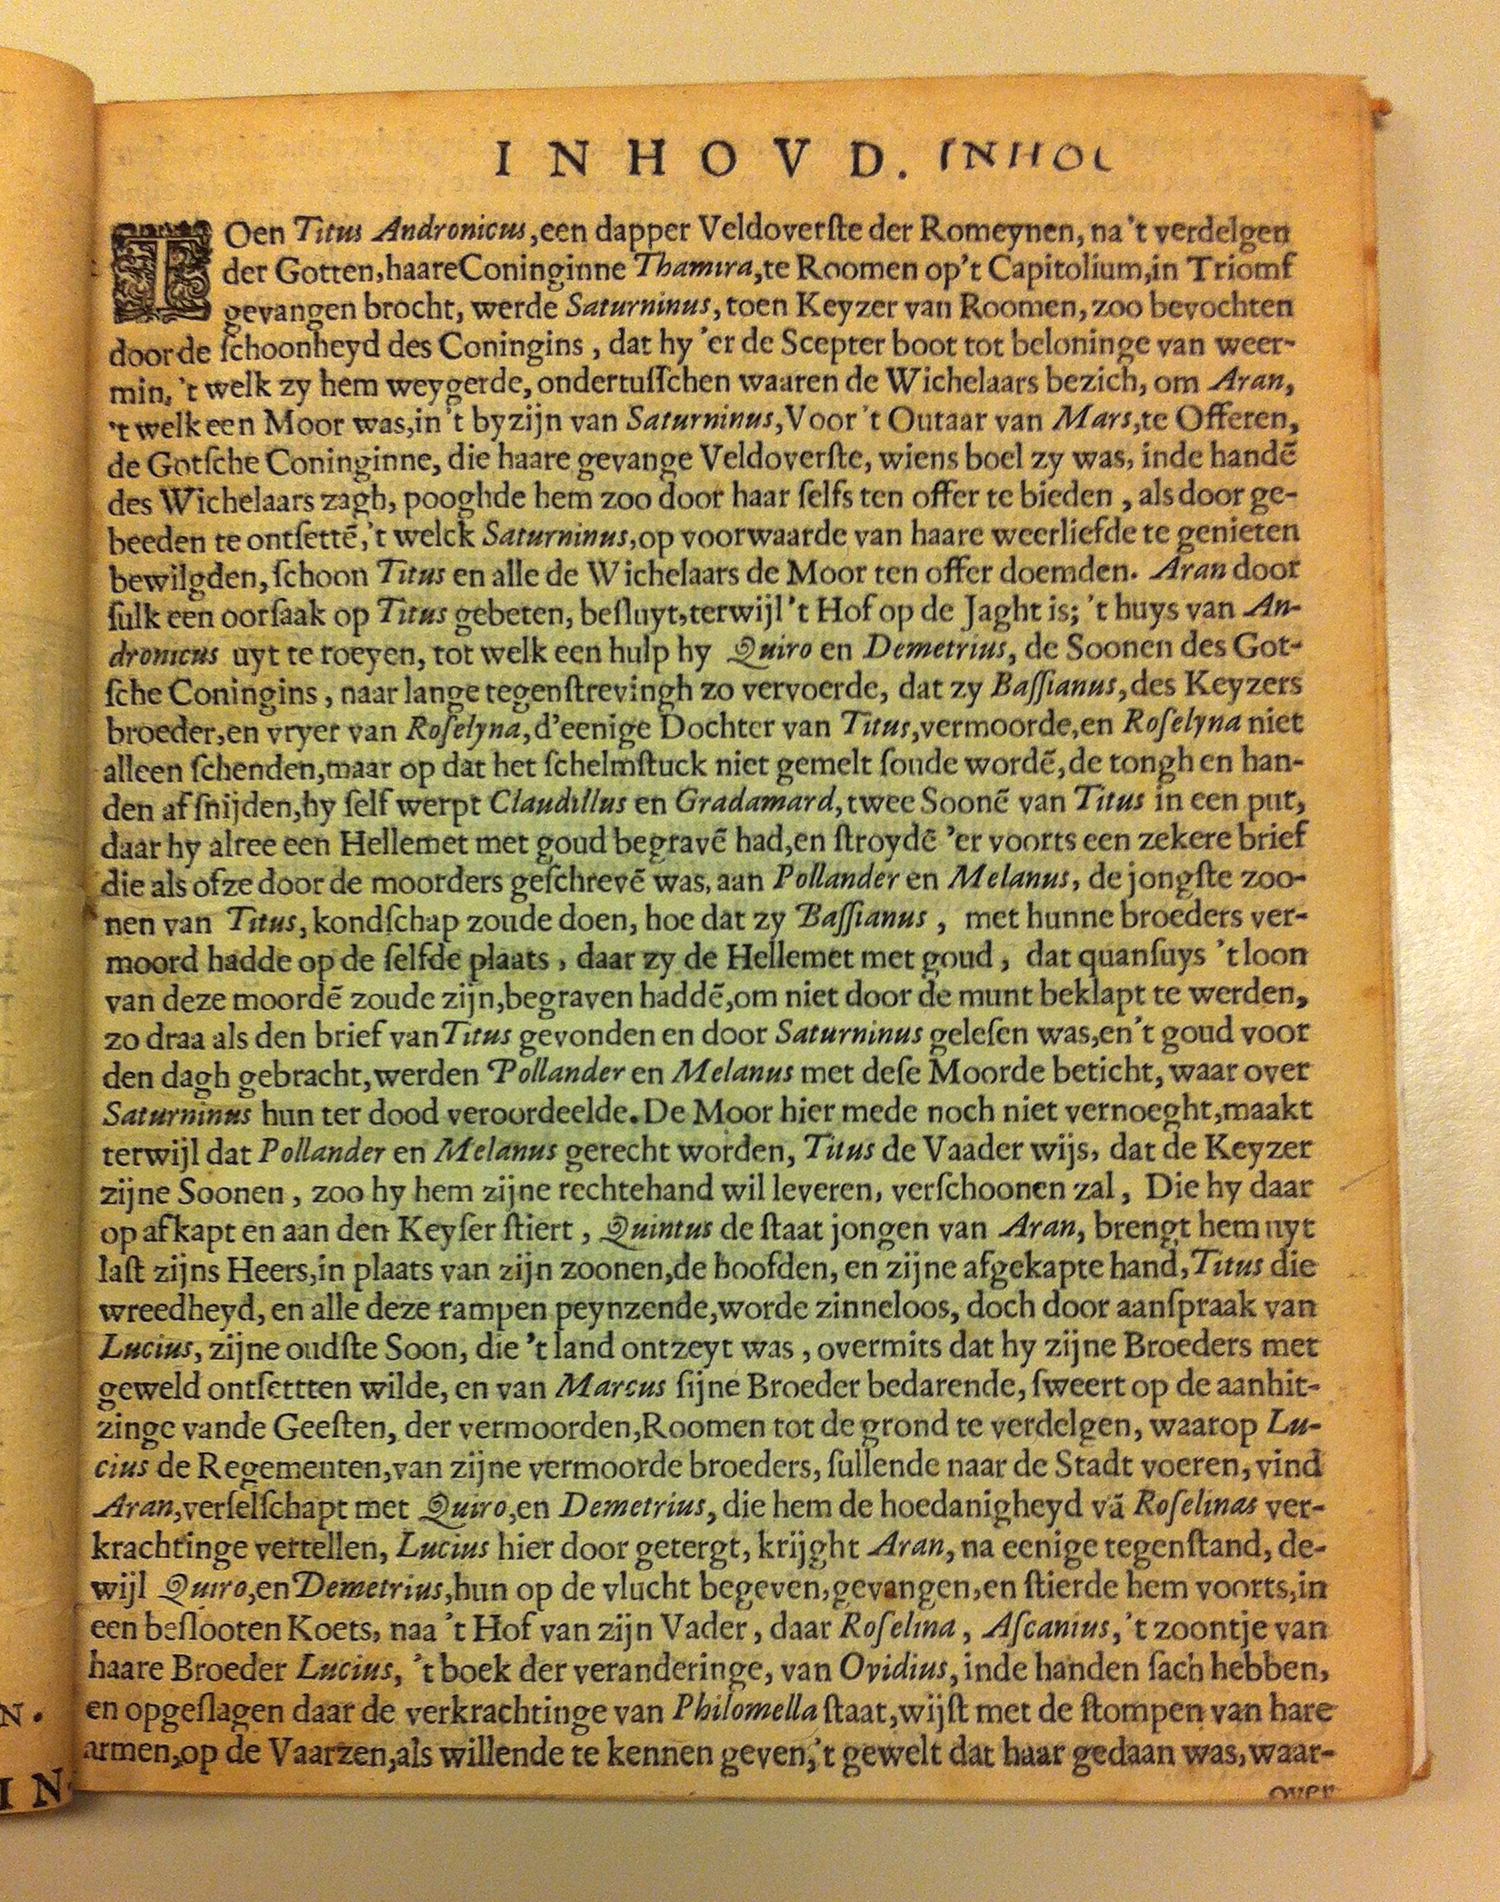 INHOVD. INHOV
TOen Titus Andronicus, een dapper Veldoverſte der Romeynen, na 't verdelgen
der Gotten, haare Coninginne Thamira, te Roomen op't Capitolium, in Triomf
gevangen brocht, werde Saturninus, toen Keyzer van Roomen, zoo bevochten
door de ſchoonheyd des Coningins, dat hy 'er de Scepter boot tot beloninge van weer-
min, 't welk zy hem weygerde, ondertuſſchen waaren de Wichelaars bezich, om Aran,
't welk een Moor was, in 't byzijn van Saturninus, Voor 't Outaar van Mars, te Offeren,
de Gotſche Coninginne, die haare gevange Veldoverſte, wiens boel zy was, inde handē
des Wichelaars zagh, pooghde hem zoo door haar ſelfs ten offer te bieden, als door ge-
beeden te ontſettē, 't welck Saturninus, op voorwaarde van haare weerliefde te genieten
bewilgden, ſchoon Titus en alle de Wichelaars de Moor ten offer doemden. Aran door
ſulk een oorſaak op Titus gebeten, beſluyt, terwijl 't Hof op de Jaght is; 't huys van An-
dronicus uyt te roeyen, tot welk een hulp hy Quiro en Demetrius, de Soonen des Got-
ſche Coningins, naar lange tegenſtrevingh zo vervoerde, dat zy Baſſianus, des Keyzers
broeder, en vryer van Roſelyna, d'eenige Dochter van Titus, vermoorde, en Roſelyna niet
alleen ſchenden, maar op dat het ſchelmſtuck niet gemelt ſoude wordē, de tongh en han-
den af ſnijden, hy ſelf werpt Claudillus en Gradamard, twee Soonē van Titus in een put,
daar hy alree een Hellemet met goud begravē had, en ſtroydē 'er voorts een zekere brief
die als ofze door de moorders geſchrevē was, aan Pollander en Melanus, de jongſte zoo-
nen van Titus, kondſchap zoude doen, hoe dat zy Baſſianus, met hunne broeders ver-
moord hadde op de ſelfde plaats, daar zy de Hellemet met goud, dat quanſuys 't loon
van deze moordē zoude zijn, begraven haddē, om niet door de munt beklapt te werden,
zo draa als den brief van Titus gevonden en door Saturninus geleſen was, en 't goud voor
den dagh gebracht, werden Pollander en Melanus met deſe Moorde beticht, waar over
Saturninus hun ter dood veroordeelde. De Moor hier mede noch niet vernoeght, maakt
terwijl dat Pollander en Melanus gerecht worden, Titus de Vaader wijs, dat de Keyzer
zijne Soonen, zoo hy hem zijne rechtehand wil leveren, verſchoonen zal, Die hy daar
op afkapt en aan den Keyſer ſtiert, Quintus de ſtaat jongen van Aran, brengt hem uyt
laſt zijns Heers, in plaats van zijn zoonen, de hoofden, en zijne afgekapte hand, Titus die
wreedheyd, en alle deze rampen peynzende, worde zinneloos, doch door aanſpraak van
Lucius, zijne oudſte Soon, die 't land ontzeyt was, overmits dat hy zijne Broeders met
geweld ontſettten wilde, en van Marcus ſijne Broeder bedarende, ſweert op de aanhit-
zinge vande Geeſten, der vermoorden, Roomen tot de grond te verdelgen, waarop Lu-
cius de Regementen, van zijne vermoorde broeders, ſullende naar de Stadt voeren, vind
Aran, verſelſchapt met Quiro, en Demetrius, die hem de hoedanigheyd vā Roſelinas ver-
krachtinge vertellen, Lucius hier door getergt, krijght Aran, na eenige tegenſtand, de-
wijl Quiro, en Demetrius, hun op de vlucht begeven, gevangen, en ſtierde hem voorts, in
een beſlooten Koets, naa 't Hof van zijn Vader, daar Roſelina, Aſcanius, 't zoontje van
haare Broeder Lucius, 't boek der veranderinge, van Ovidius, inde handen ſach hebben,
en opgeſlagen daar de verkrachtinge van Philomella ſtaat, wijſt met de ſtompen van hare
armen, op de Vaarzen, als willende te kennen geven, 't gewelt dat haar gedaan was, waar-
over
N.
IN